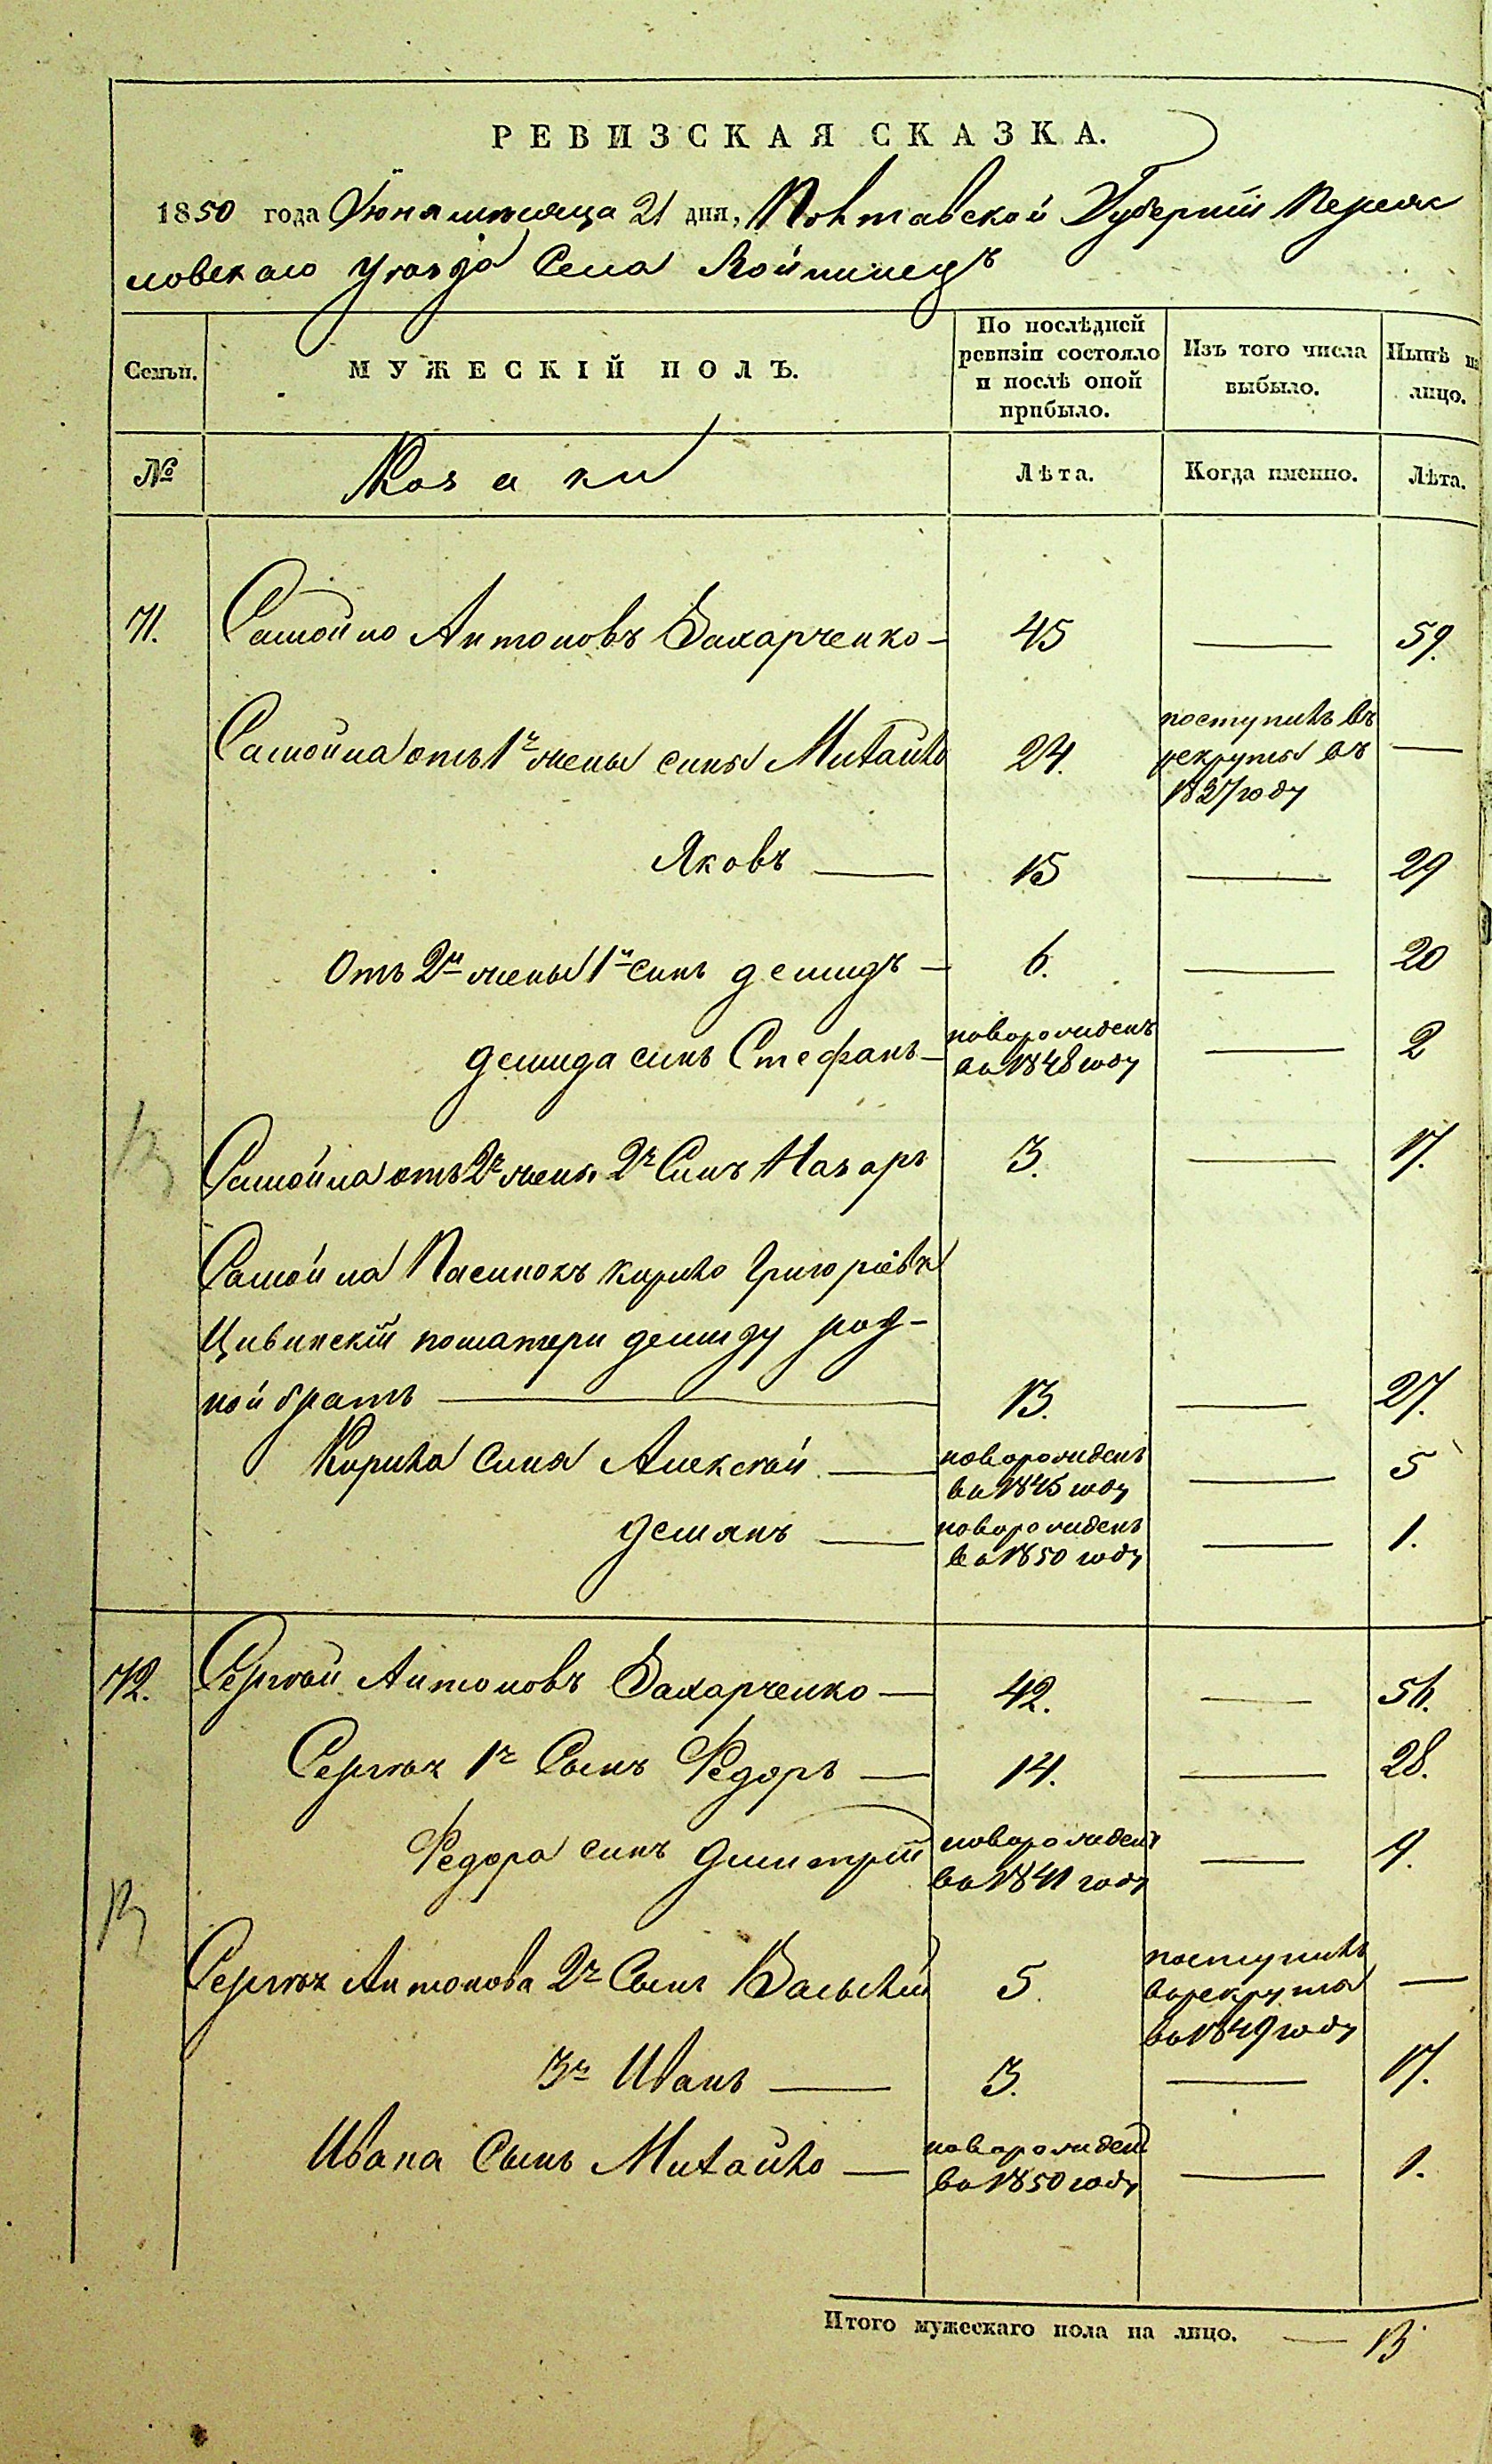 РЕВИЗСКАЯ СКАЗКА.
1850 года Іюня мѣсяца 21 дня, Полтавской Губерніи Переяс
ловскаго уѣзда Села Войтинецъ
Семьи. МУЖЕСКІЙ ПОЛЪ. По послѣдней ревизіи состояло и послѣ оной прибыло. Изъ того числа выбыло. Нынѣ на лицо.
№ Козаки Лѣта. Когда именно. Лѣта.
71. Самойло Антоновъ Захарченко — 45 — 59.
Самойла отъ 1й жены сынъ Михайло 24. поступилъ въ рекруты въ 1837 году —
Яковъ — 15 — 29
Отъ 2й жены 1й синъ Демидъ — 6. — 20
Демида синъ Стефанъ — новорожденъ въ 1848 году — 2
Самойла отъ 2й жены 2й Синъ Назаръ 3. — 17.
Самойла Пасинокъ Кирило Григоріевъ
Цивинскій поматери Демиду род-
ной братъ — 13. — 27.
Кирила Сыня Алексѣй — новорожденъ въ 1845 году — 5
Демянъ — новорожденъ въ 1850 году — 1.
72. Сергѣй Антоновъ Захарченко — 42. — 56.
Сергѣя 1й Сынъ Федоръ — 14. — 28.
Федора синъ Дмитрій новорожденъ въ 1841 году — 9.
Сергѣя Антонова 2й Сынъ Василій 5. поступилъ въ рекруты въ 1849 году —
3й Иванъ — 3. — 17.
Ивана Сынъ Михайло — новорожден въ 1850 году — 1.
Итого мужескаго пола на лицо. — 13